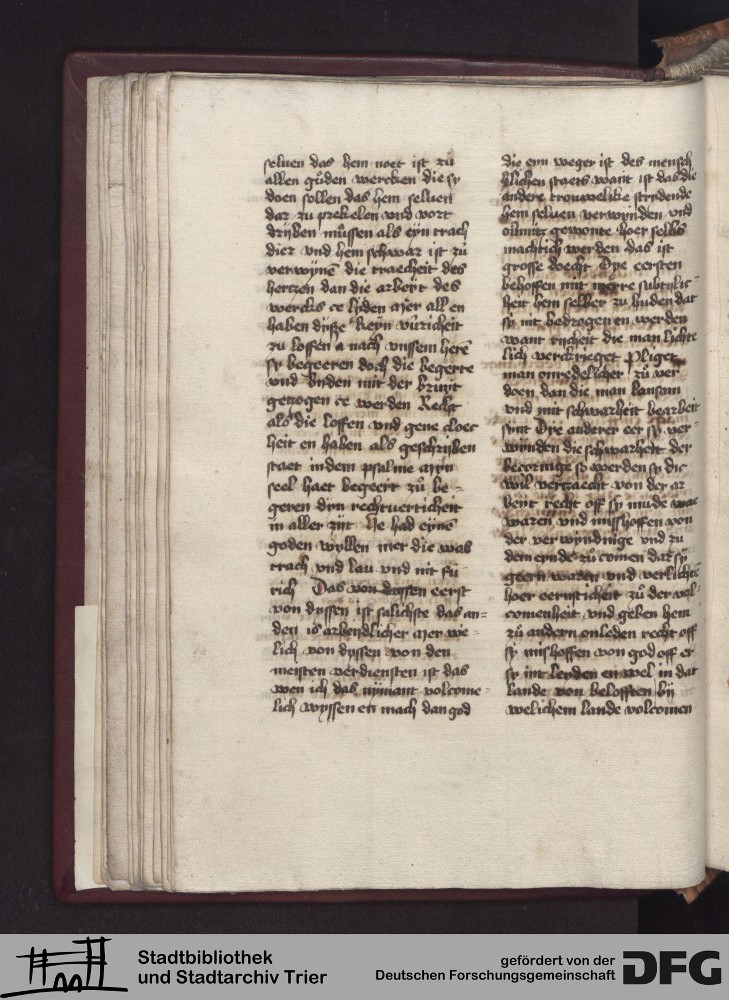 seluen das hem noet ist zů
allen gůden wercken die sy
doen sollen das hem seluen
dar zu prekelen vnd vort
drijben můssen als eyn trach
dier vnd hem schwar ist zů
verwÿnē die traecheit des
hertzen dan die arbeyt des
wercks ce lyden mer all en
haben dysse keyn vůricheit
zu loffen nach vnssem herē
sy begeeren doch die begerte
vnd bynden mit der bruyt
getzogen ce werden Recht
als die loffen vnd gene cloec
heit en haben als geschrijben
staet in dem psalme myn
seel haet begeert zů be-
geren dyn rechtuerticheit
in aller zijt He had eynē
goden wyllen mer die was
trach vnd lau vnd nit fü
rich Das von dyssen eerst
von dyssen ist salichste das an-
den is arbeydlicher mer we-
lich von dyssen von den
meisten verdiensten ist das
wen ich das nymant volcome-
lich wyssen en mach dan god
die eyn weger ist des mensch
lichen staets want ist das die
andere trouwelike strydende
hem seluen verwynden vnd
gewonte hoer selbs
machtich werden das ist
grosse doecht Dye eersten
behoffen mit merre subtylic-
heit hem selber zu huden dat
sy nit bedrogen en werden
want rycheit die man lichte
lich vercrieget Pliget
man onredelicher zů ver
doen dan die man lansam
vnd mit schwarheit bearbeit
synt Dye anderer eer sy ver-
wynden die schwarheit der
becoringe so werden sy die
wil vertzaecht von der ar
beyt recht off sy mude
waren vnd misshoffen von
der verwyndnige vnd zu
dem eynde zů comen dat sy
geern waren vnd verlichtē
hoer eernsticheit zů der vol-
comenheit vnd geben hem
zů andern onleden recht off
sy mishoffen von god off er
sy int leyden en wel in dat
lande von belofften bij
welichem lande volcomen
Stadtbibliothek
und Stadtarchiv Trier
gefördert von der
Deutschen Forschungsgemeinschaft
DFG